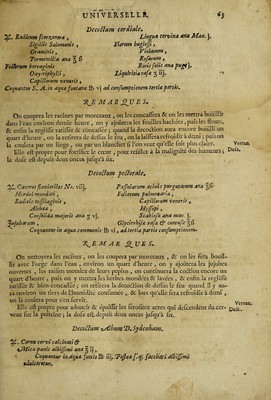 UNIVERSELLE. 63
Decoctum cordiale.
Radicum scorzonera,
Sigilli Salomonis,
Graminis,
Tormentilla ana ℥ ß
Foliorum borraginis
Oxytriphylli,
Capillorum veneris,
Lingua cervina ana Man. j.
Florum buglossi,
Violarum,
Rosarum,
Roris solis ana pug. j.
Liquiritia rasa ʒ iij.
Coquantur S. A. in aqua fontana ℔ vj ad consumptionem tertia partis.
REMARQUES.
On coupera les racines par morceaux, on les concassera & on les mettra bouillir
dans l'eau environ demie heure, on y ajoûtera les feuilles hachées, puis les fleurs,
& enfin la reglisse ratissée & concassée; quand la decoction aura encore bouilli un
quart d'heure, on la retirera de dessus le feu, on la laissera refroidir à demi; puis on
la coulera par un linge, ou par un blanchet si l'on veut qu'elle soit plus claire.
Elle est propre pour fortifier le cœur, pour resister à la malignité des humeurs;
la dose est depuis deux onces jusqu'à six.
Vertus.
Dose.
Decoctum pectorale.
Hordei mundati,
Radicis tussilaginis,
Althea,
Consolida majoris ana ʒ vj.
Jujubarum,
Passularum acinis purgatarum ana ℥ß
Foliorum pulmonaria,
Capillorum veneris,
Hyssopi,
Scabiosa ana man. j.
Glycyrrhiza rasa & contusa ℥ß
Coquantur in aqua communis ℔ vj, ad tertia partis consumptionem.
REMARQUES.
On nettoyera les racines, on les coupera par morceaux, & on les fera bouillir
avec l'orge dans l'eau, environ un quart d'heure, on y ajoûtera les jujubes
ouvertes, les raisins mondez de leurs pepins, on continuera la coction encore un
quart d'heure, puis on y mettra les herbes mondées & lavées, & enfin la reglisse
ratissée & bien concassée; on retirera la decoction de dessus le feu quand il y aura
environ un tiers de l'humidité consumée, & lors qu'elle sera refroidie à demi,
on la coulera pour s'en servir.
Elle est propre pour adoucir & épaissir les serositez acres qui descendent du cerveau
sur la poitrine; la dose est depuis deux onces jusqu'à six.
Vertus.
Dose.
Decoctum Album D. Sydenham.
Cornu cervi calcinati &
Mica panis albissimi ana ℥ ij,
Coquantur in aqua fontis ℔ iij. Postea
sacchari albissimi
edulcorentur.